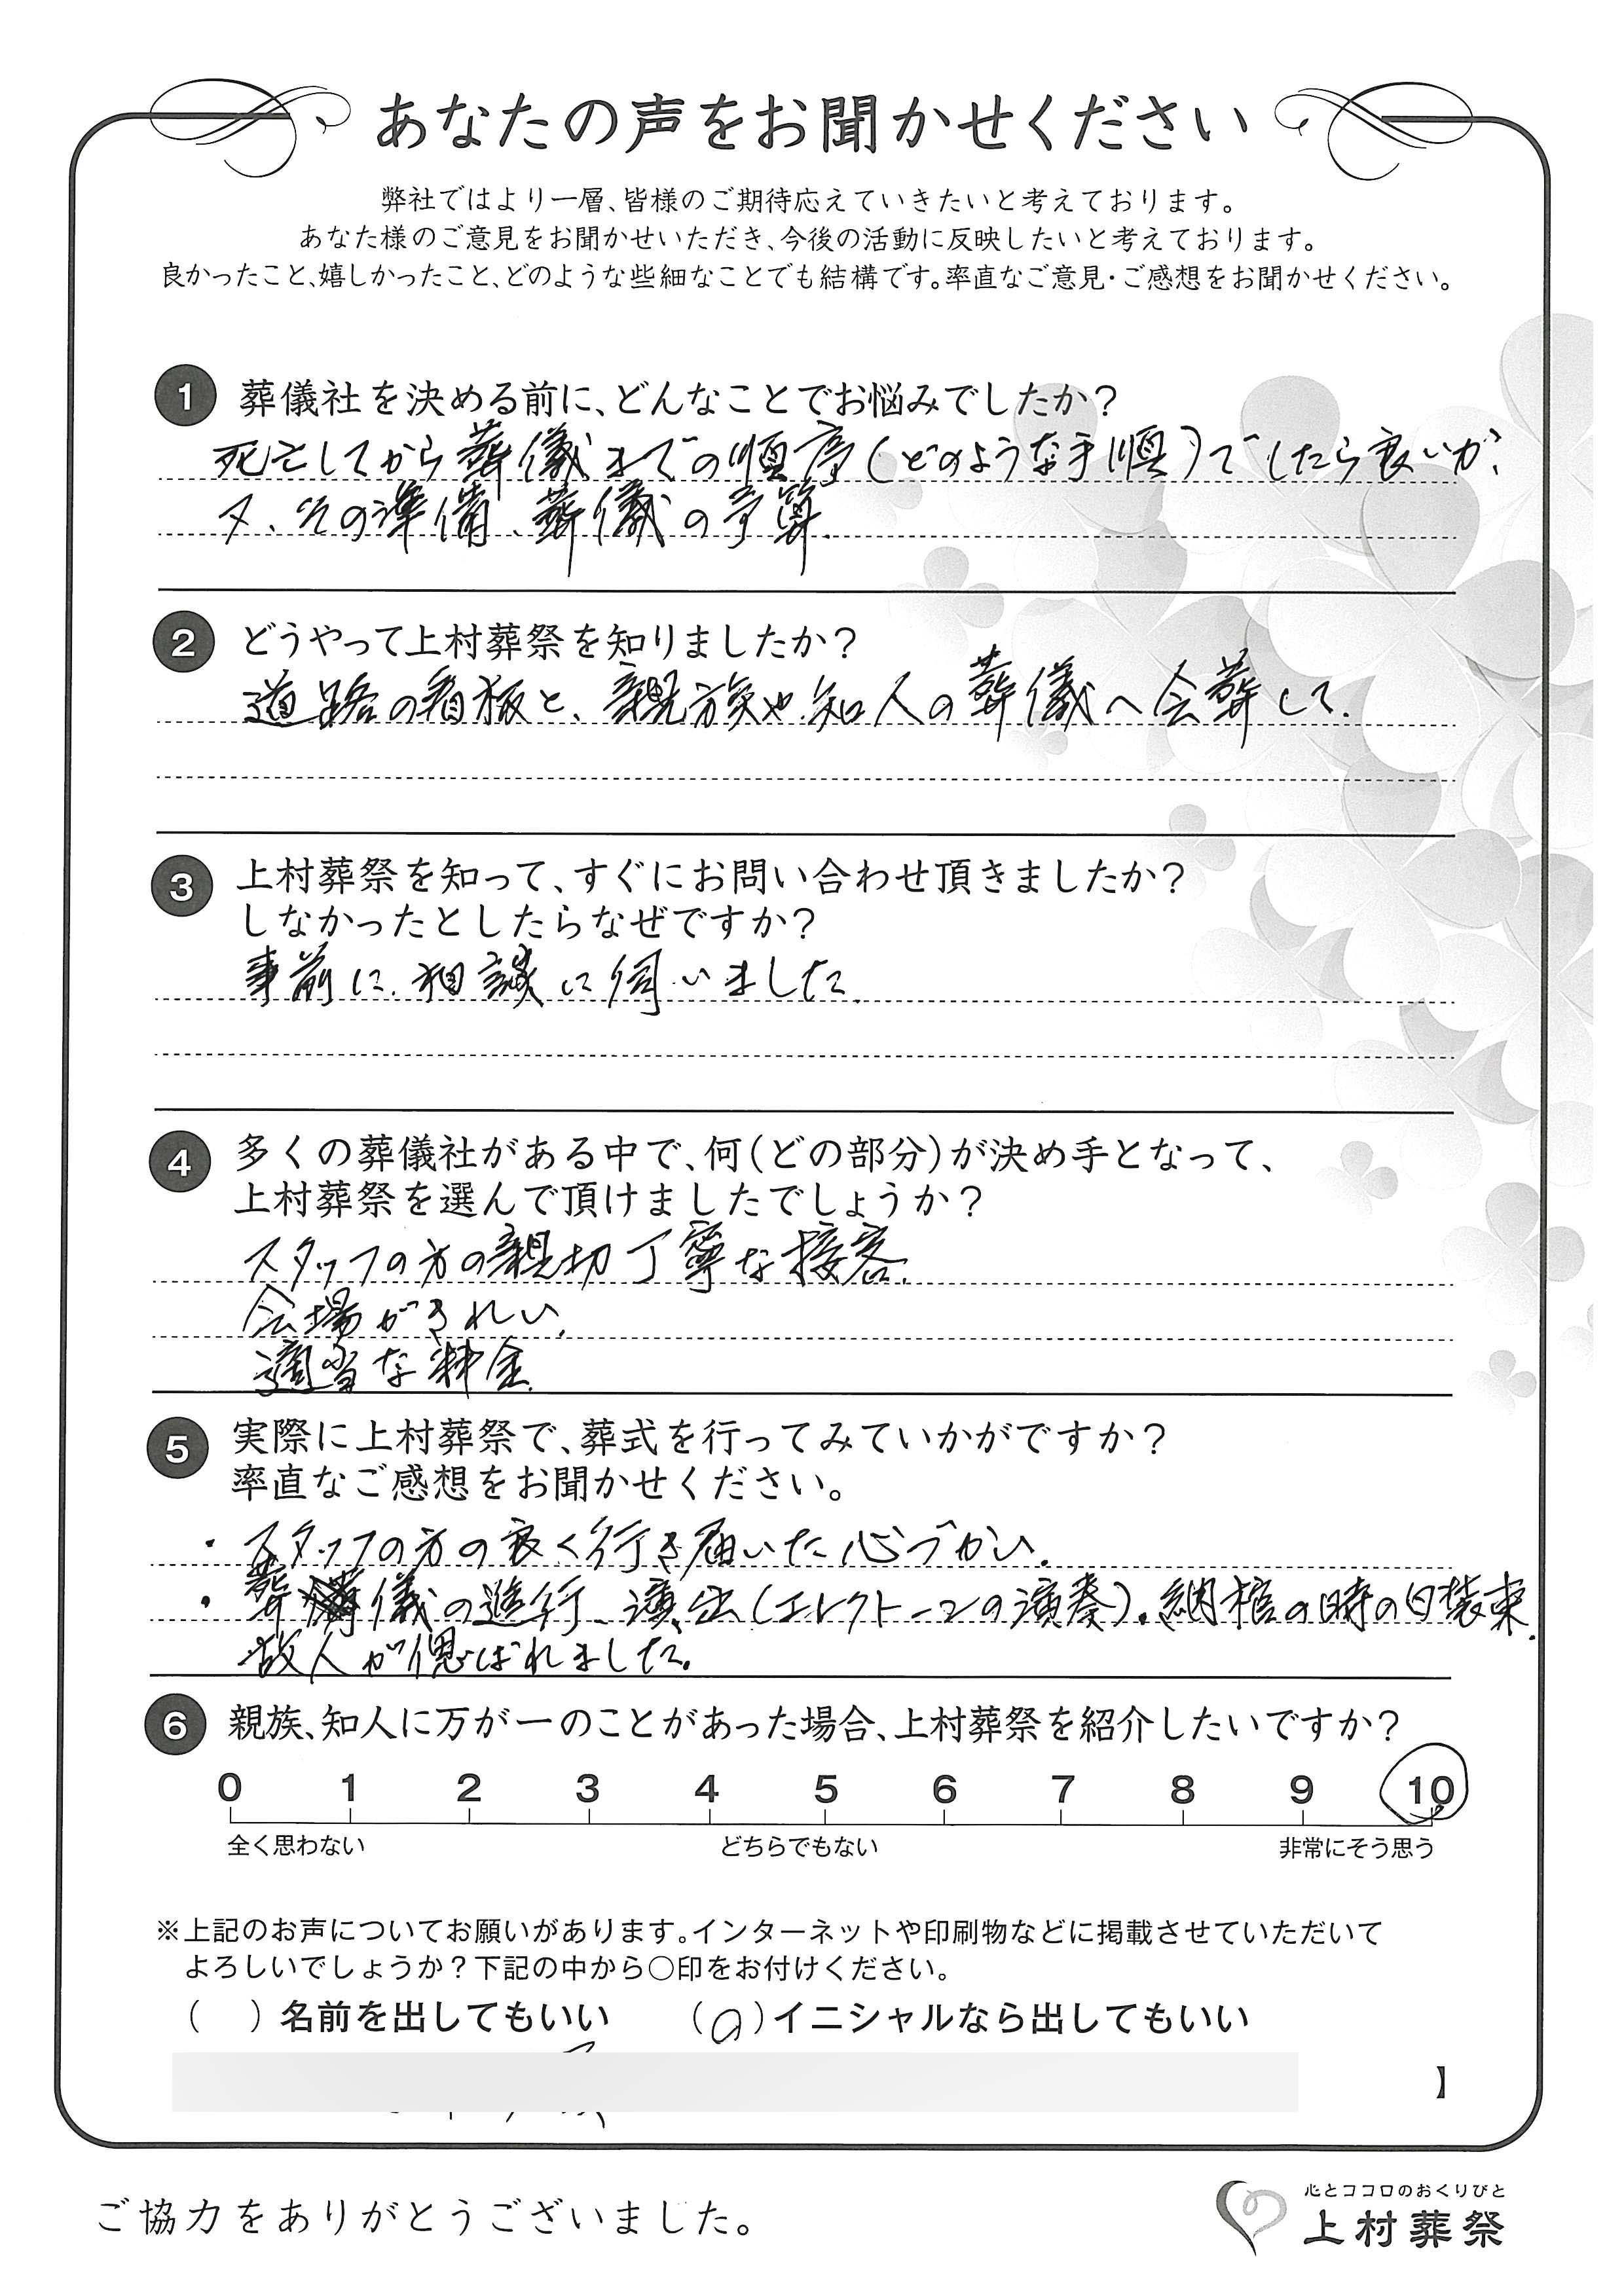 あなたの声をお聞かせください
弊社ではより一層、皆様のご期待応えていきたいと考えております。
あなた様のご意見をお聞かせいただき、今後の活動に反映したいと考えております。
良かったこと、嬉しかったこと、どのような些細なことでも結構です。率直なご意見・ご感想をお聞かせください。
1 葬儀社を決める前に、どんなことでお悩みでしたか?
死亡してから葬儀までの順序(どのような手順)でしたら良いか?
又、その準備、葬儀の予算.
2 どうやって上村葬祭を知りましたか?
道路の看板と、親族や知人の葬儀へ会葬して.
3 上村葬祭を知って、すぐにお問い合わせ頂きましたか?
しなかったとしたらなぜですか?
事前に、相談に伺いました.
4 多くの葬儀社がある中で、何(どの部分)が決め手となって、
上村葬祭を選んで頂けましたでしょうか?
スタッフの方の親切丁寧な接客.
会場がきれい.
適当な料金.
5 実際に上村葬祭で、葬式を行ってみていかがですか?
率直なご感想をお聞かせください。
・スタッフの方の良く行き届いた心づかい.
・葬儀の進行、演出(エレクトーンの演奏).納棺の時の白装束.
故人が偲ばれました.
6 親族、知人に万が一のことがあった場合、上村葬祭を紹介したいですか?
0 1 2 3 4 5 6 7 8 9 10
全く思わない どちらでもない 非常にそう思う
※上記のお声についてお願いがあります。インターネットや印刷物などに掲載させていただいて
よろしいでしょうか?下記の中から○印をお付けください。
( )名前を出してもいい (○)イニシャルなら出してもいい
】
ご協力をありがとうございました。
心とココロのおくりびと
上村葬祭